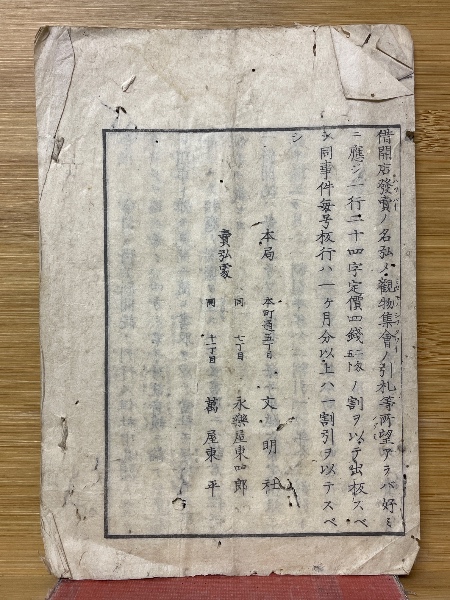 借開店發賣ノ名弘メ觀物集會ノ引札等所望アラバ好ミ
ニ應ジ一行二十四字定價四錢ノ割ヲ以テ出板スベ
シ同事件毎号板行ハ一ヶ月分以上ハ一割引ヲ以テスベ
シ
本局 本町通五丁目 文明社
賣弘處 同 七丁目 永樂屋東四郎
同 十一丁目 萬屋東平